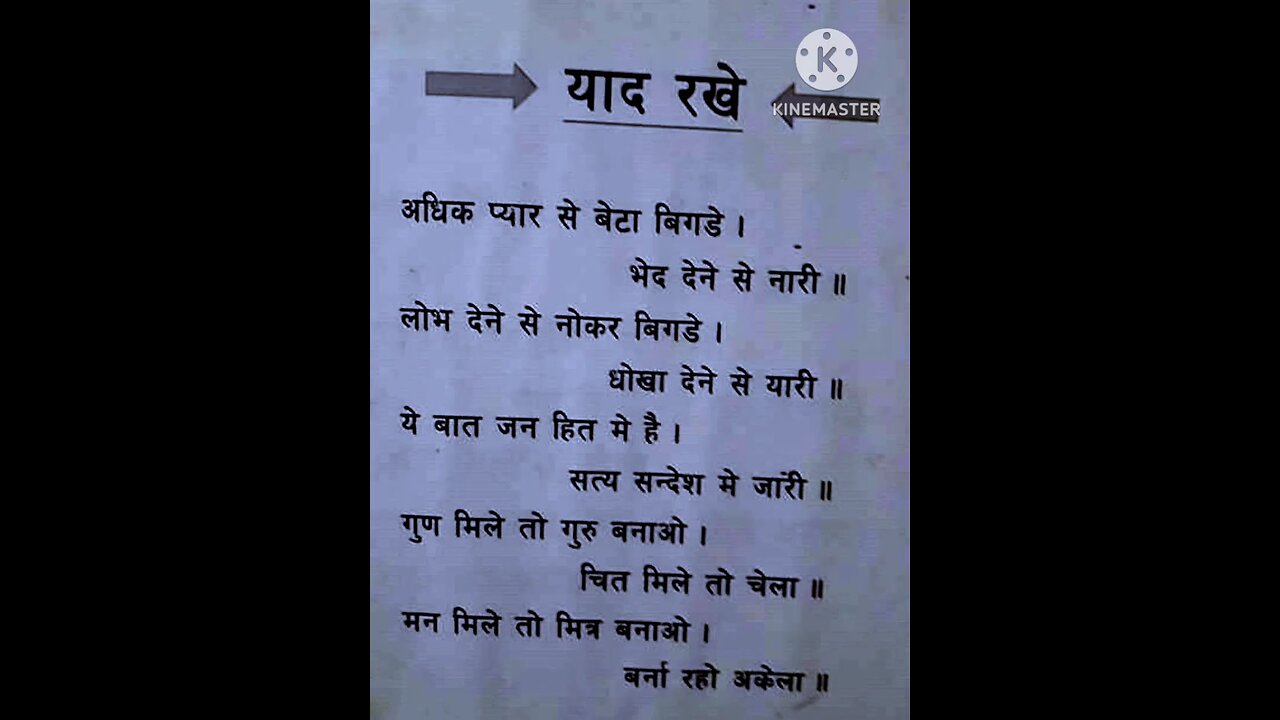 याद रखे
KINEMASTER
अधिक प्यार से बेटा बिगडे ।
भेद देने से नारी ॥
लोभ देने से नोकर बिगडे ।
धोखा देने से यारी ॥
ये बात जन हित मे है ।
सत्य सन्देश मे जारी ॥
गुण मिले तो गुरु बनाओ ।
चित मिले तो चेला ॥
मन मिले तो मित्र बनाओ ।
बर्ना रहो अकेला ॥